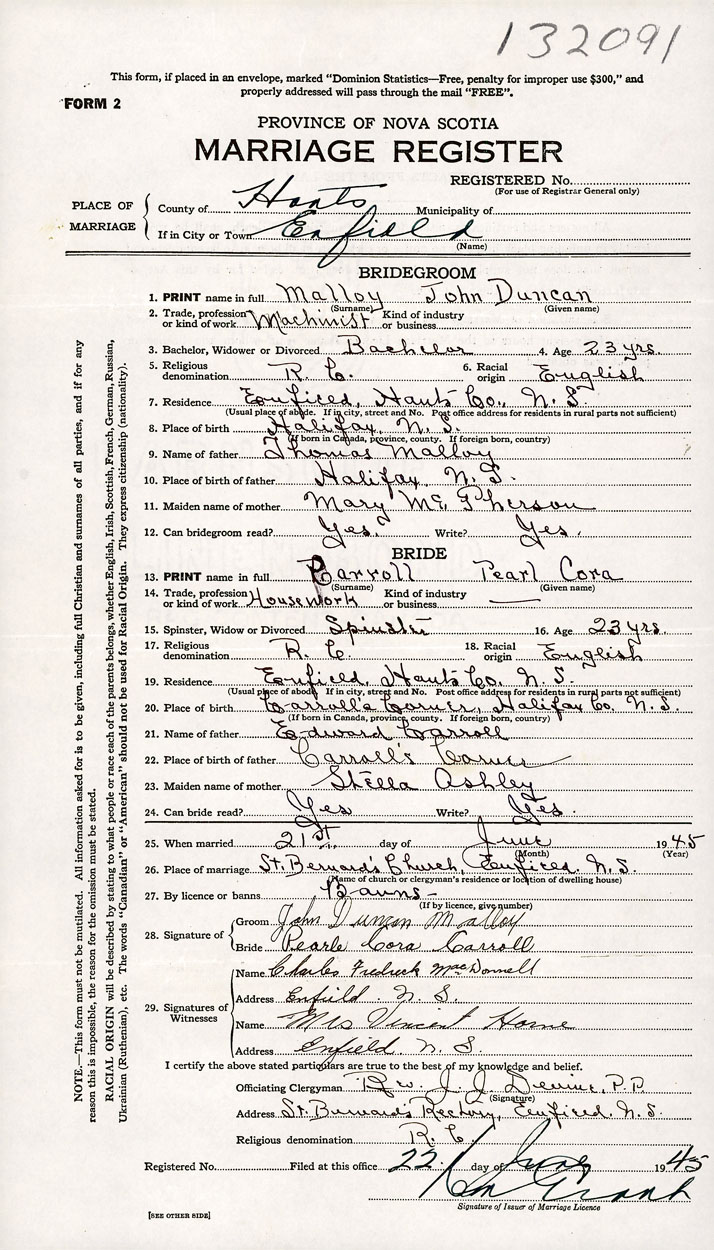 132091
This form, if placed in an envelope, marked "Dominion Statistics—Free, penalty for improper use $300," and
properly addressed will pass through the mail "FREE".
FORM 2
PROVINCE OF NOVA SCOTIA
MARRIAGE REGISTER
REGISTERED No.
(For use of Registrar General only)
PLACE OF MARRIAGE
County of Hants Municipality of
If in City or Town Enfield
(Name)
BRIDEGROOM
1. PRINT name in full Malloy John Duncan
(Surname) (Given name)
2. Trade, profession or kind of work Machinist Kind of industry or business
3. Bachelor, Widower or Divorced Bachelor 4. Age 23 yrs.
5. Religious denomination R. C. 6. Racial origin English
7. Residence Enfield, Hants Co., N. S.
(Usual place of abode. If in city, street and No. Post office address for residents in rural parts not sufficient)
8. Place of birth Halifax, N. S.
(If born in Canada, province, county. If foreign born, country)
9. Name of father Thomas Malloy
10. Place of birth of father Halifax, N. S.
11. Maiden name of mother Mary McPherson
12. Can bridegroom read? Yes. Write? Yes.
BRIDE
13. PRINT name in full Carroll Pearl Cora
(Surname) (Given name)
14. Trade, profession or kind of work Housework Kind of industry or business —
15. Spinster, Widow or Divorced Spinster 16. Age 23 yrs.
17. Religious denomination R. C. 18. Racial origin English
19. Residence Enfield, Hants Co. N. S.
(Usual place of abode. If in city, street and No. Post office address for residents in rural parts not sufficient)
20. Place of birth Carroll's Corner, Halifax Co. N. S.
(If born in Canada, province, county. If foreign born, country)
21. Name of father Edward Carroll
22. Place of birth of father Carroll's Corner
23. Maiden name of mother Stella Ashley
24. Can bride read? Yes Write? Yes.
25. When married 21st. day of June 1945
(Month) (Year)
26. Place of marriage St. Bernard's Church, Enfield. N. S.
(Name of church or clergyman's residence or location of dwelling house)
27. By licence or banns Banns -
(If by licence, give number)
28. Signature of
Groom John Duncan Malloy
Bride Pearle Cora Carroll
29. Signatures of Witnesses
Name Charles Fredrick MacDonnell
Address Enfield. N. S.
Name Mrs Vincent Horne
Address Enfield N. S.
I certify the above stated particulars are true to the best of my knowledge and belief.
Officiating Clergyman Rev. J. J. Devine, P.P.
(Signature)
Address St. Bernard's Rectory, Enfield. N. S.
Religious denomination R. C.
Registered No. Filed at this office 22 day of June 1945
Grant
Signature of Issuer of Marriage Licence
[SEE OTHER SIDE]
NOTE.—This form must not be mutilated. All information asked for is to be given, including full Christian and surnames of all parties, and if for any
reason this is impossible, the reason for the omission must be stated.
RACIAL ORIGIN will be described by stating to what people or race each of the parents belongs, whether English, Irish, Scottish, French, German, Russian,
Ukrainian (Ruthenian), etc. The words "Canadian" or "American" should not be used for Racial Origin. They express citizenship (nationality).